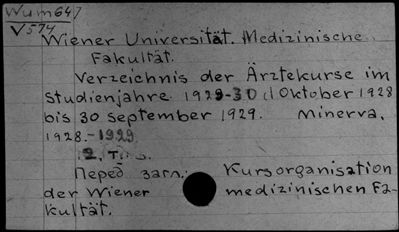 Wum647
V574
Wiener Universität. Medizinische
Fakultät.
Verzeichnis der Ärztekurse im
Studienjahre 1929-30 (1 Oktober 1928
bis 30 September 1929. Minerva,
1928.-1929
12,
Перед загл.: Kursorganisation
der Wiener medizinischen Fa-
kultät.